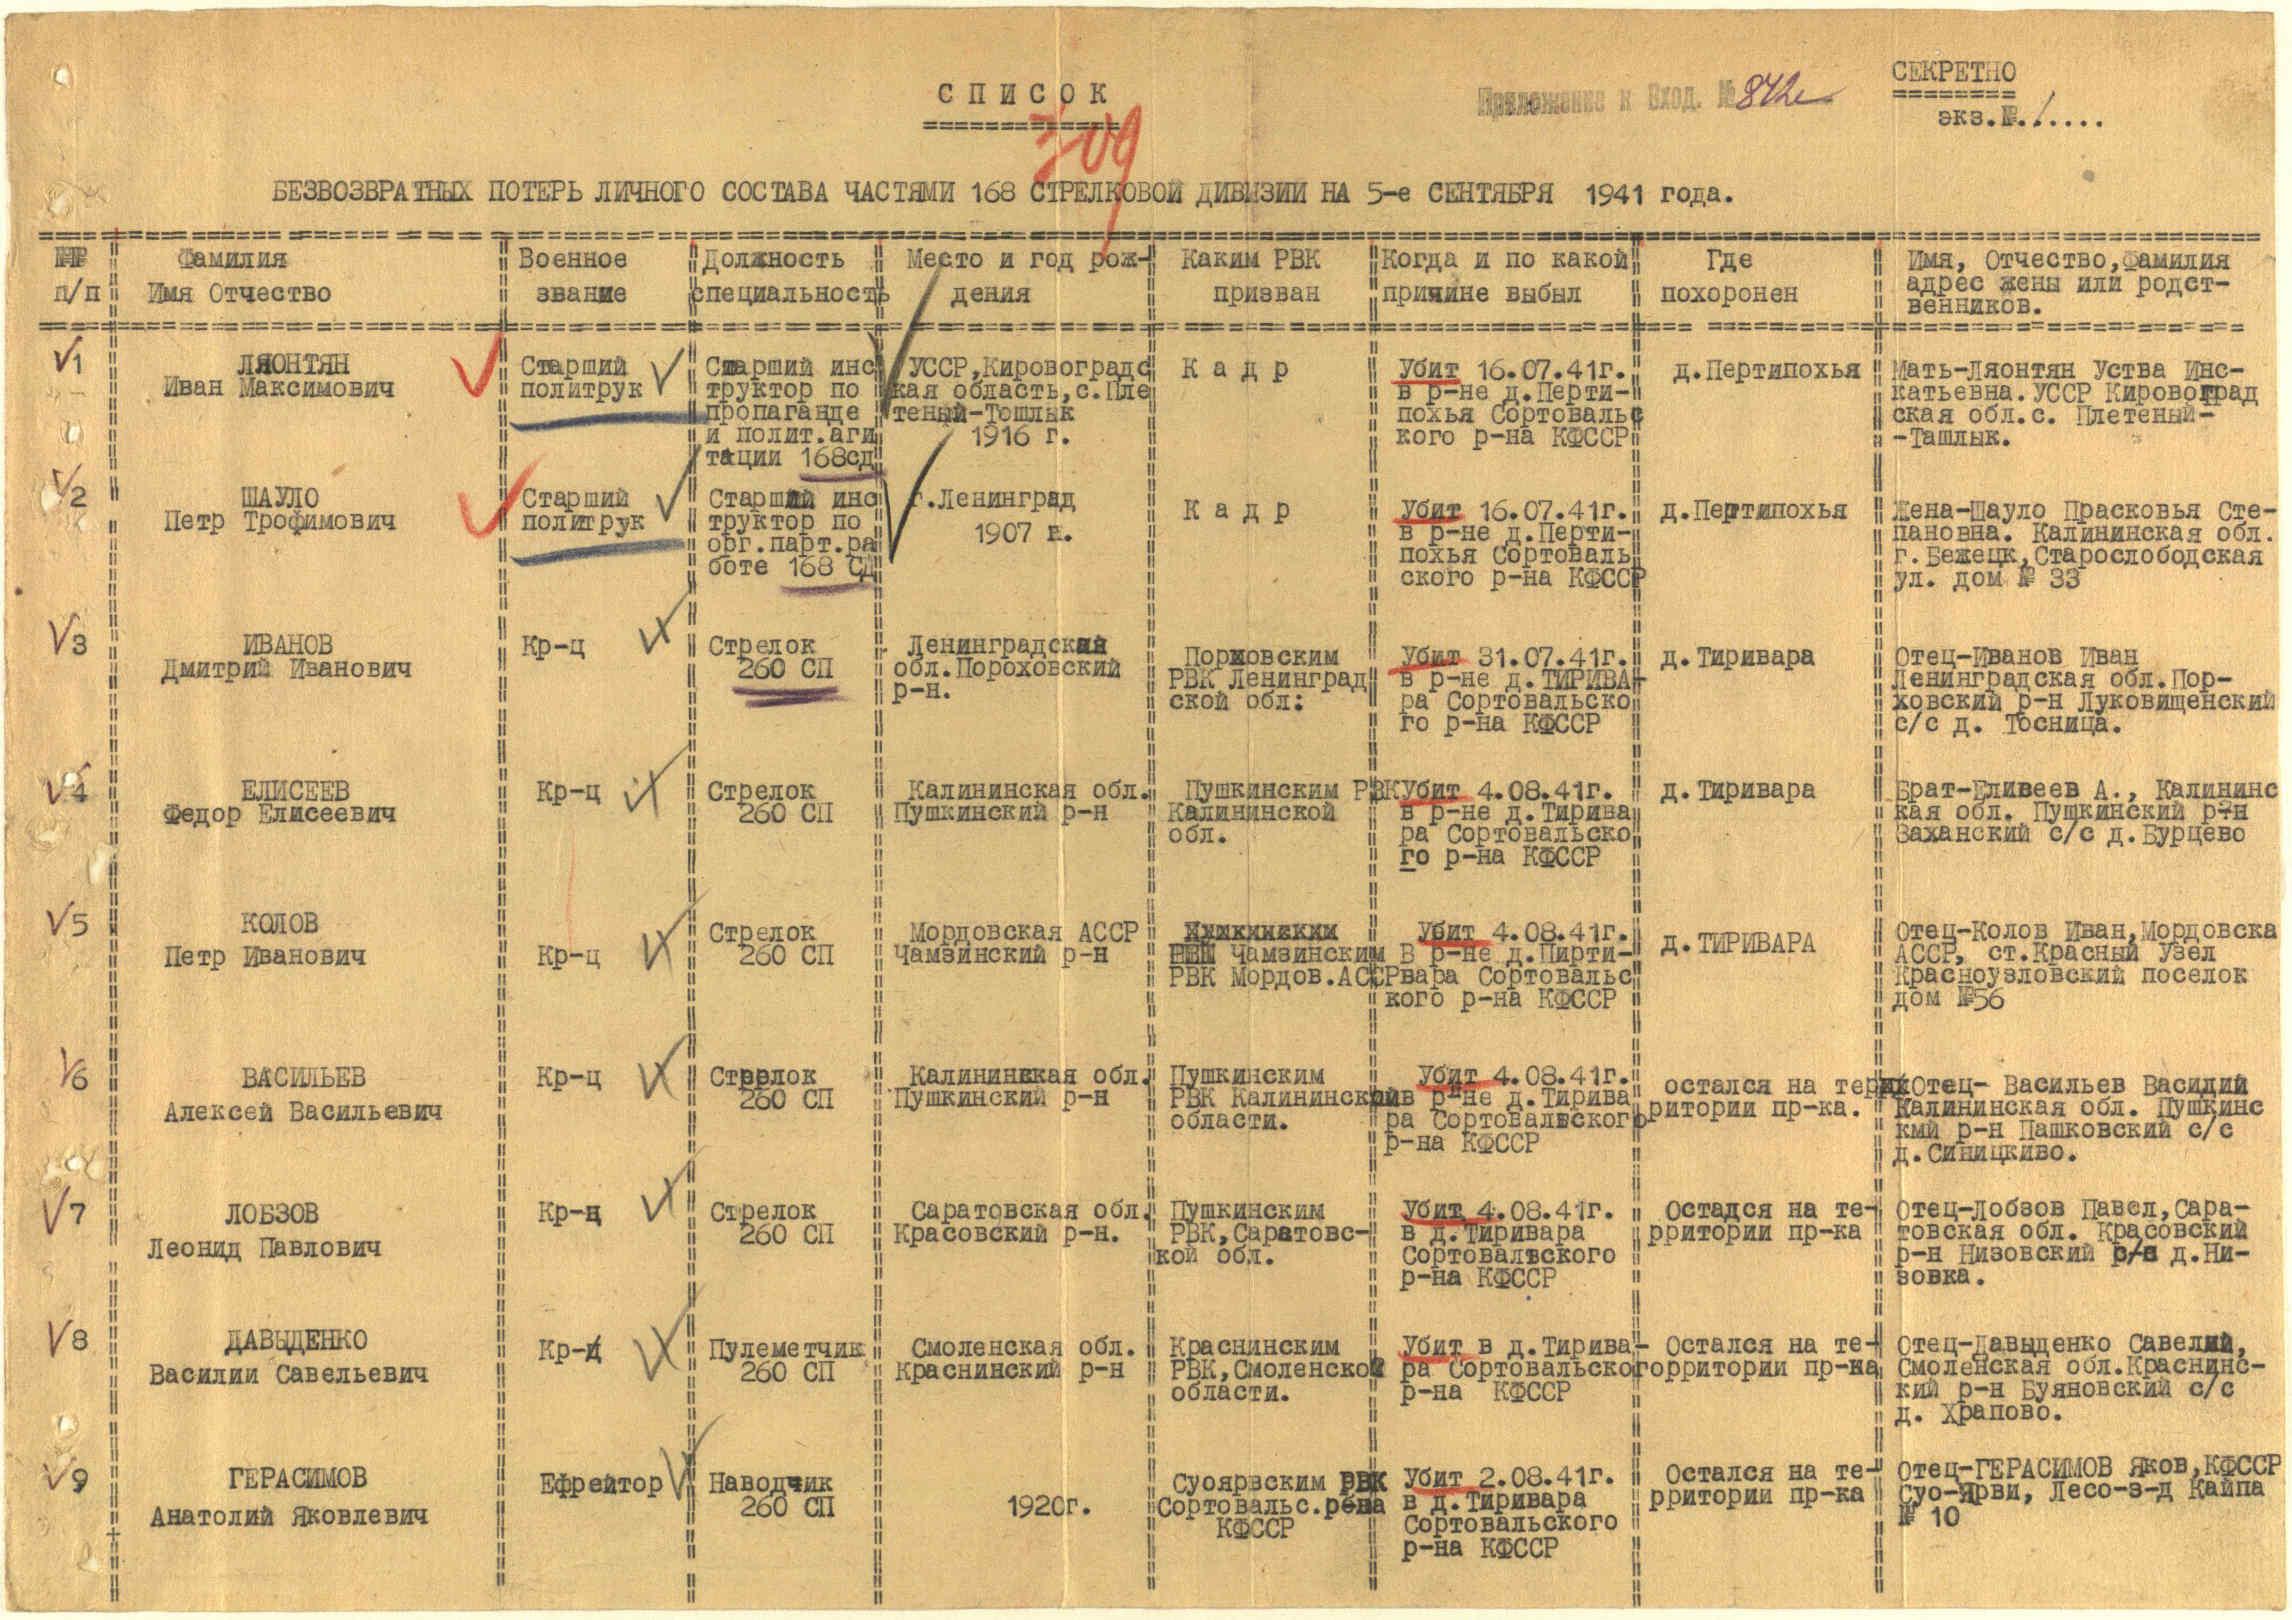 СПИСОК
Приложение к Вход. № 842с
СЕКРЕТНО
экз.№.1....
309
БЕЗВОЗВРАТНЫХ ПОТЕРЬ ЛИЧНОГО СОСТАВА ЧАСТЯМИ 168 СТРЕЛКОВОЙ ДИВИЗИИ НА 5-е СЕНТЯБРЯ 1941 года.
№№ п/п
Фамилия
Имя Отчество
Военное
звание
Должность
специальность
Место и год рож-
дения
Каким РВК
призван
Когда и по какой
причине выбыл
Где
похоронен
Имя, Отчество, Фамилия
адрес жены или родст-
венников.
1
ЛЯОНТЯН
Иван Максимович
Старший
политрук
Старший инс
труктор по
пропаганде
и полит.аги
тации 168сд
УССР,Кировоградс
кая область,с.Пле
теный-Тошлык
1916 г.
Кадр
Убит 16.07.41г.
в р-не д.Перти-
похья Сортовальс
кого р-на КФССР
д.Пертипохья
Мать-Ляонтян Уства Инс-
катьевна.УССР Кировоград
ская обл.с. Плетеный-
-Ташлык.
2
ШАУЛО
Петр Трофимович
Старший
политрук
Старший инс
труктор по
орг.парт.ра
боте 168 СД
г.Ленинград
1907 г.
Кадр
Убит 16.07.41г.
в р-не д.Перти-
похья Сортоваль
ского р-на КФССР
д.Пертипохья
Жена-Шауло Прасковья Сте-
пановна. Калининская обл.
г.Бежецк,Старослободская
ул. дом № 33
3
ИВАНОВ
Дмитрий Иванович
Кр-ц
Стрелок
260 СП
Ленинградский
обл.Пороховский
р-н.
Порховским
РВК Ленинград
ской обл:
Убит 31.07.41г.
в р-не д.ТИРИВА-
ра Сортовальско
го р-на КФССР
д.Тиривара
Отец-Иванов Иван
Ленинградская обл.Пор-
ховский р-н Луковищенский
с/с д. Тосница.
4
ЕЛИСЕЕВ
Федор Елисеевич
Кр-ц
Стрелок
260 СП
Калининская обл.
Пушкинский р-н
Пушкинским РВК
Калининской
обл.
Убит 4.08.41г.
в р-не д.Тирива
ра Сортовальско
го р-на КФССР
д.Тиривара
Брат-Еливеев А., Калининс
кая обл. Пушкинский р-н
Заханский с/с д.Бурцево
5
КОЛОВ
Петр Иванович
Кр-ц
Стрелок
260 СП
Мордовская АССР
Чамзинский р-н
Пушкинским
Чамзинским
РВК Мордов.АССР
Убит 4.08.41г.
В р-не д.Пирти-
вара Сортовальс
кого р-на КФССР
д.ТИРИВАРА
Отец-Колов Иван,Мордовска
АССР, ст.Красный Узел
Красноузловский поселок
дом №56
6
ВАСИЛЬЕВ
Алексей Васильевич
Кр-ц
Стрелок
260 СП
Калининская обл.
Пушкинский р-н
Пушкинским
РВК Калининский
области.
Убит 4.08.41г.
в р-не д.Тирива
ра Сортовальского
р-на КФССР
остался на тер
ритории пр-ка.
Отец- Васильев Василий
Калининская обл. Пушкинс
кмй р-н Пашковский с/с
д.Синицкиво.
7
ЛОБЗОВ
Леонид Павлович
Кр-ц
Стрелок
260 СП
Саратовская обл.
Красовский р-н.
Пушкинским
РВК,Саратовс-
кой обл.
Убит 4.08.41г.
в д.Тиривара
Сортовальского
р-на КФССР
Остался на те-
рритории пр-ка
Отец-Лобзов Павел,Сара-
товская обл. Красовский
р-н Низовский с/с д.Ни-
зовка.
8
ДАВЫДЕНКО
Василии Савельевич
Кр-ц
Пулеметчик
260 СП
Смоленская обл.
Краснинский р-н
Краснинским
РВК,Смоленской
области.
Убит в д.Тирива-
ра Сортовальского
р-на КФССР
Остался на те-
рритории пр-ка
Отец-Давыденко Савелий,
Смоленская обл.Краснинс-
кий р-н Буяновский с/с
д. Храпово.
9
ГЕРАСИМОВ
Анатолий Яковлевич
Ефрейтор
Наводчик
260 СП
1920г.
Суоярвским РВК
Сортовальс.р-на
КФССР
Убит 2.08.41г.
в д.Тиривара
Сортовальского
р-на КФССР
Остался на те-
рритории пр-ка
Отец-ГЕРАСИМОВ Яков,КФССР
Суо-Ярви, Лесо-з-д Кайпа
№ 10